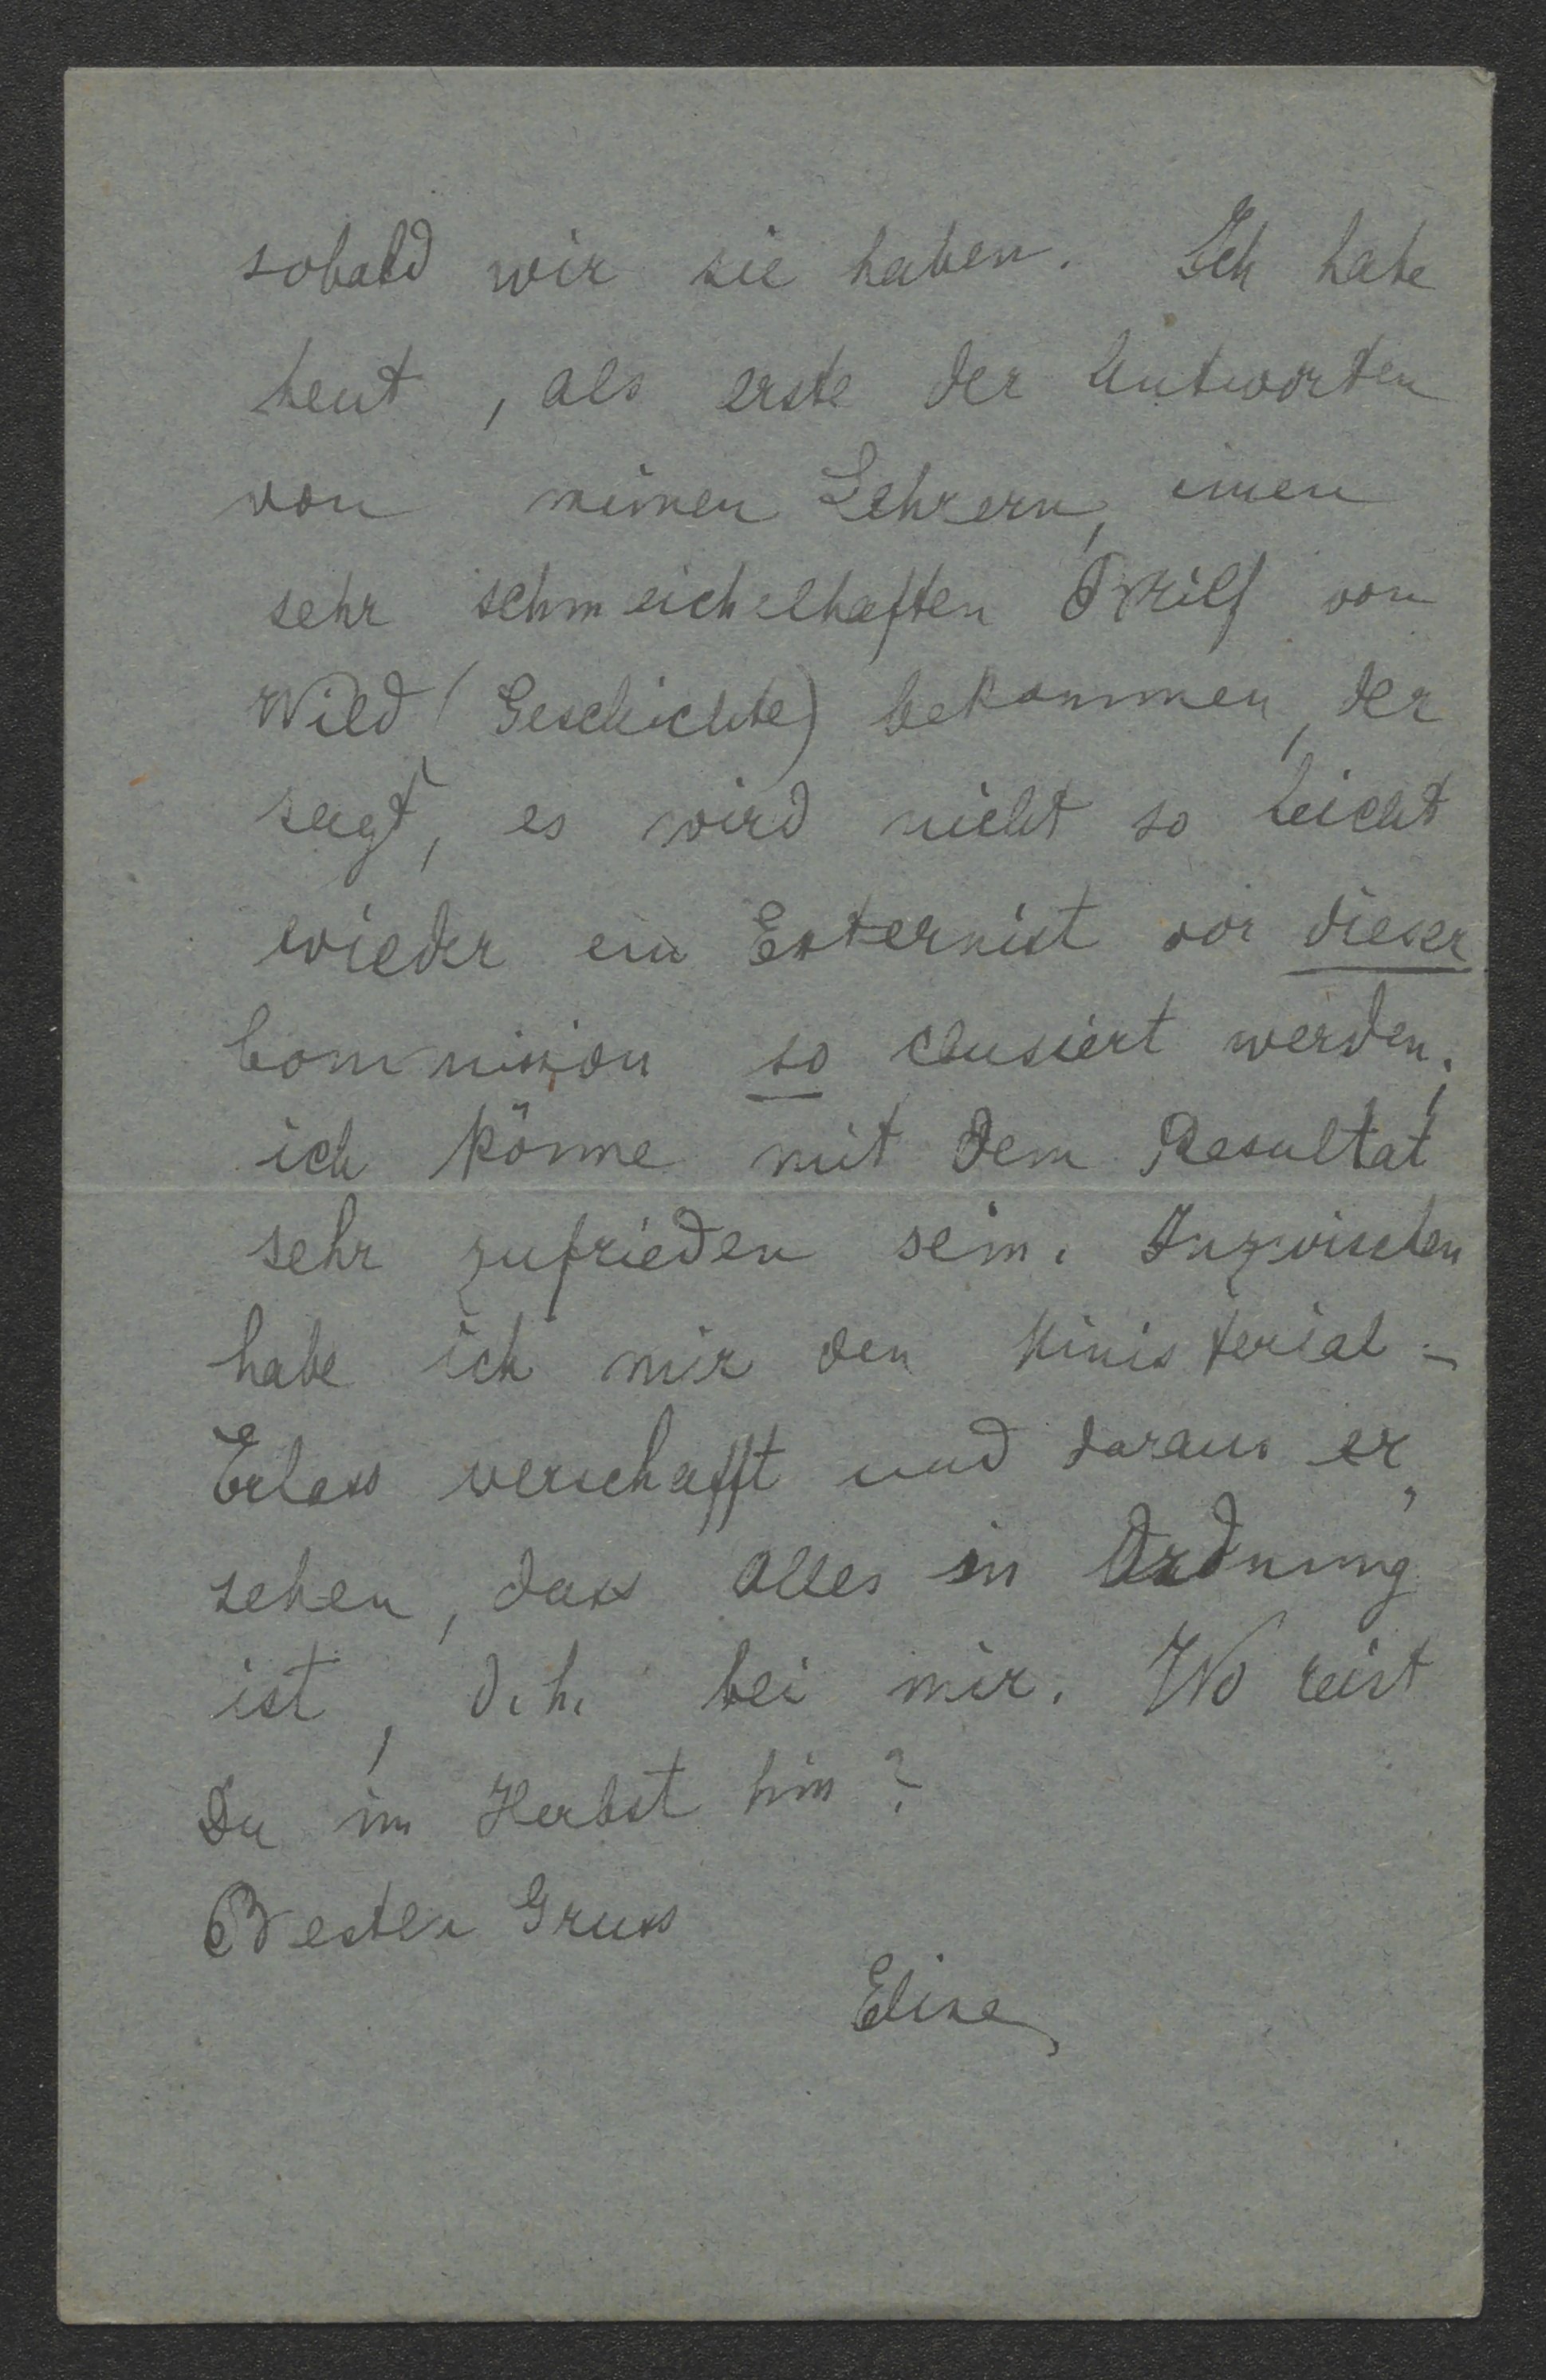 sobald wir sie haben. Ich habe
heut, als erste der Antworten
von meinen Lehrern, einen
sehr schmeichelhaften Brief von
Wild (Geschichte) bekommen, der
sagt, es wird nicht so leicht
wieder ein Externist vor dieser
Commission so clausiert werden;
ich könne mit dem Resultat
sehr zufrieden sein. Inzwischen
habe ich mir den Ministerial-
Erlass verschafft und daraus er„
sehen, dass alles in Ordnung
ist, d. h. bei mir. Wo reist
Du im Herbst hin?
Besten Gruss
Elise